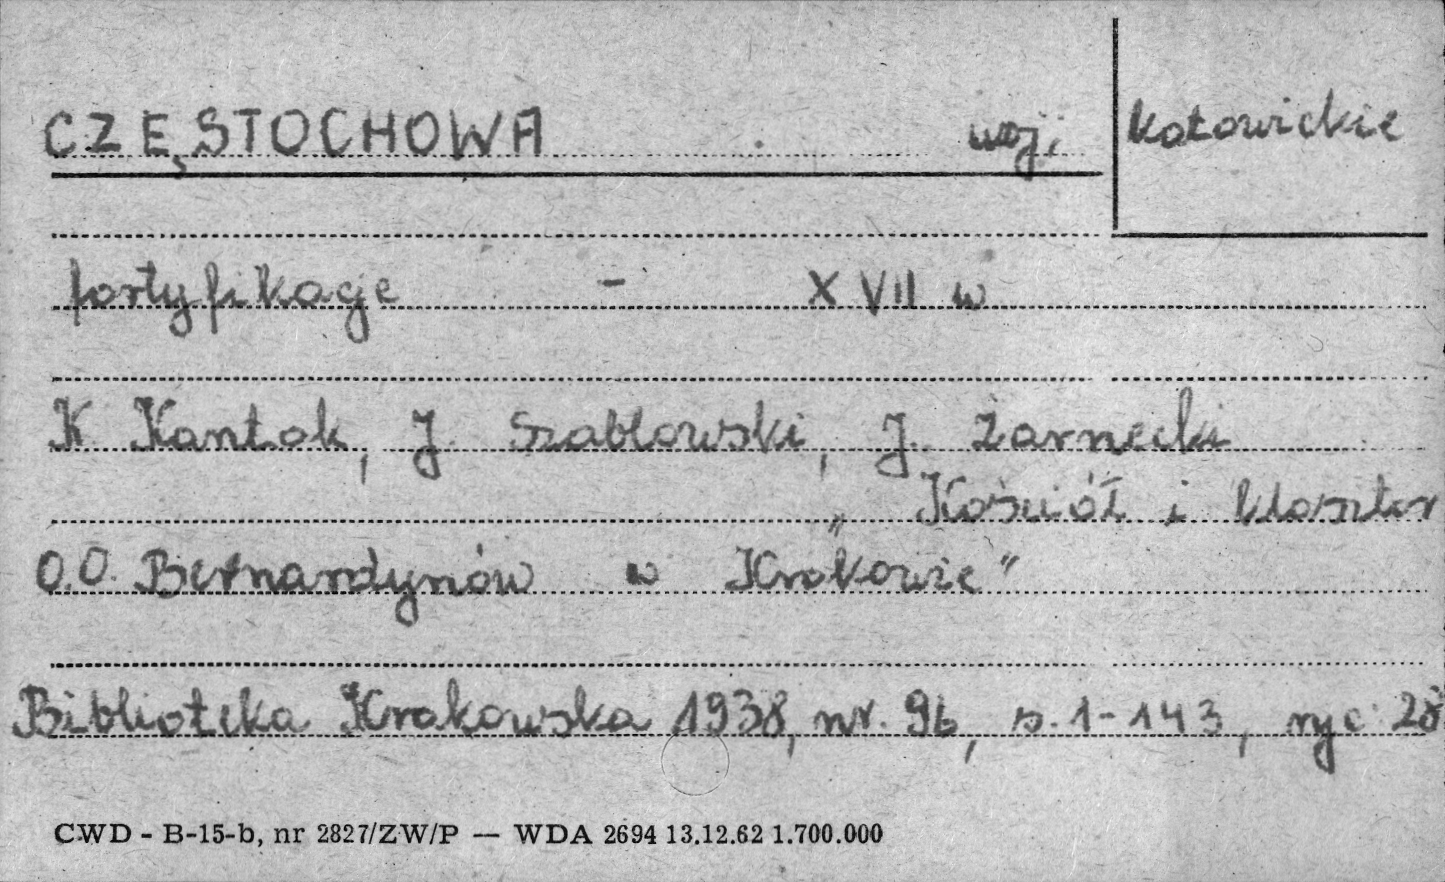 CZĘSTOCHOWA woj. katowickie
fortyfikacje - XVII w
K Kantak, J. Szablowski, J. Żarnecki
„Kościół i klasztor
O.O. Bernardynów w Krakowie"
Biblioteka Krakowska 1938, nr. 96, s. 1-143, ryc 28
CWD - B-15-b, nr 2827/ZW/P — WDA 2694 13.12.62 1.700.000